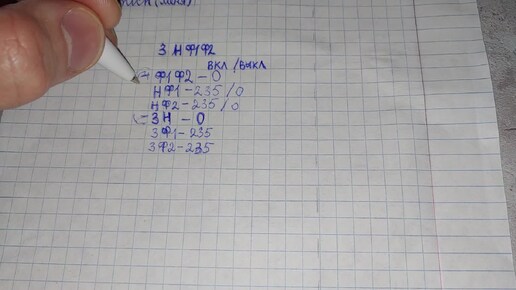 З Н Ф1Ф2
вкл /выкл
Ф1Ф2 – 0
НФ1 – 235 / 0
НФ2 – 235 / 0
ЗН – 0
ЗФ1 – 235
ЗФ2 – 235